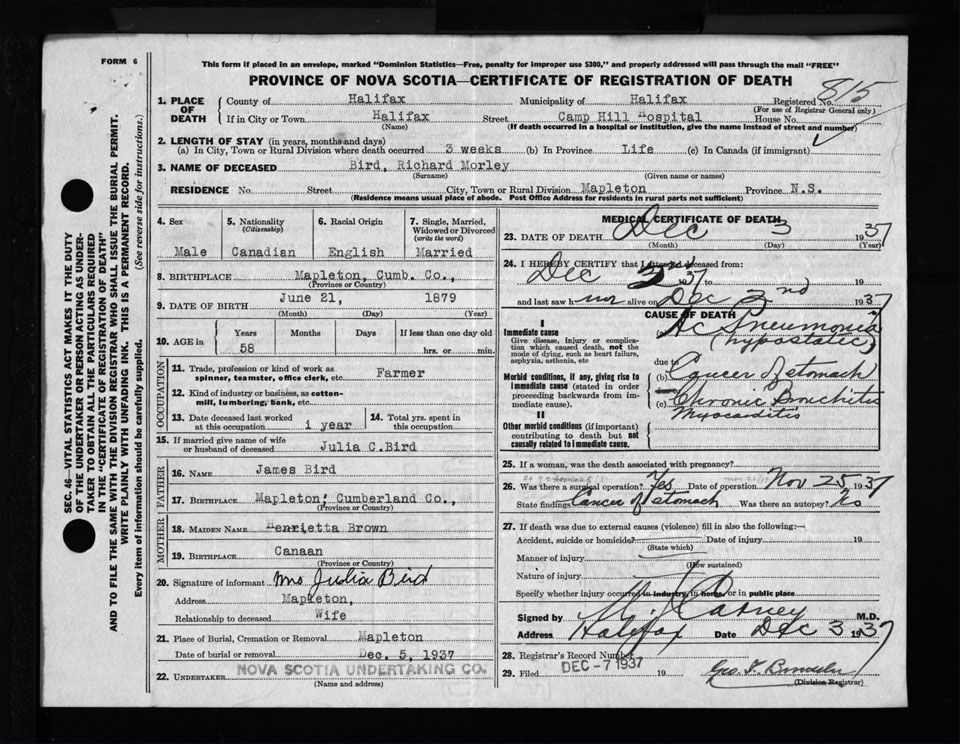 FORM 6
This form if placed in an envelope, marked "Dominion Statistics—Free, penalty for improper use $300," and properly addressed will pass through the mail "FREE"
PROVINCE OF NOVA SCOTIA—CERTIFICATE OF REGISTRATION OF DEATH
815
1. PLACE OF DEATH
County of Halifax Municipality of Halifax Registered No.
(For use of Registrar General only)
If in City or Town Halifax Street Camp Hill Hospital House No.
(Name) (If death occurred in a hospital or institution, give the name instead of street and number)
2. LENGTH OF STAY (in years, months and days)
(a) In City, Town or Rural Division where death occurred 3 weeks (b) In Province Life (c) In Canada (if immigrant)
3. NAME OF DECEASED Bird, Richard Morley
(Surname) (Given name or names)
RESIDENCE No. Street City, Town or Rural Division Mapleton Province N.S.
(Residence means usual place of abode. Post Office Address for residents in rural parts not sufficient)
4. Sex 5. Nationality (Citizenship) 6. Racial Origin 7. Single, Married, Widowed or Divorced (write the word)
Male Canadian English Married
8. BIRTHPLACE Mapleton, Cumb. Co.,
(Province or Country)
9. DATE OF BIRTH June 21, 1879
(Month) (Day) (Year)
10. AGE in Years Months Days If less than one day old
58 hrs. or min.
OCCUPATION
11. Trade, profession or kind of work as spinner, teamster, office clerk, etc. Farmer
12. Kind of industry or business, as cotton-mill, lumbering, bank, etc.
13. Date deceased last worked at this occupation 1 year 14. Total yrs. spent in this occupation
15. If married give name of wife or husband of deceased Julia C.Bird
FATHER
16. NAME James Bird
17. BIRTHPLACE Mapleton, Cumberland Co.,
(Province or Country)
MOTHER
18. MAIDEN NAME Henrietta Brown
19. BIRTHPLACE Canaan
(Province or Country)
20. Signature of informant Mrs Julia Bird
Address Mapleton,
Relationship to deceased Wife
21. Place of Burial, Cremation or Removal Mapleton
Date of burial or removal Dec. 5, 1937
22. UNDERTAKER NOVA SCOTIA UNDERTAKING CO.
(Name and address)
MEDICAL CERTIFICATE OF DEATH
23. DATE OF DEATH Dec 3 1937
(Month) (Day) (Year)
24. I HEREBY CERTIFY that I attended deceased from:
Dec 37 to 19
and last saw h alive on Dec 2nd 1937
CAUSE OF DEATH
I
Immediate cause
Give disease, injury or complication which caused death, not the mode of dying, such as heart failure, asphyxia, asthenia, etc
(a) Ac Pneumonia
(hypostatic)
due to
Morbid conditions, if any, giving rise to immediate cause (stated in order proceeding backwards from immediate cause).
(b) Cancer of stomach
due to
(c) Chronic Bronchitis
II
Myocarditis
Other morbid conditions (if important) contributing to death but not causally related to immediate cause.
25. If a woman, was the death associated with pregnancy?
26. Was there a surgical operation? Yes Date of operation Nov 25 1937
State findings Cancer of stomach Was there an autopsy?
27. If death was due to external causes (violence) fill in also the following:—
Accident, suicide or homicide? Date of injury 19
(State which)
Manner of injury
(How sustained)
Nature of injury
Specify whether injury occurred in industry, in home, or in public place
Signed by Carney M.D.
Address Halifax Date Dec 3 1937
28. Registrar's Record Number
29. Filed DEC -7 1937 19
(Division Registrar)
SEC. 46—VITAL STATISTICS ACT MAKES IT THE DUTY
OF THE UNDERTAKER OR PERSON ACTING AS UNDER-
TAKER TO OBTAIN ALL THE PARTICULARS REQUIRED
IN THE "CERTIFICATE OF REGISTRATION OF DEATH"
AND TO FILE THE SAME WITH THE DIVISION REGISTRAR WHO SHALL ISSUE THE BURIAL PERMIT.
WRITE PLAINLY WITH UNFADING INK. THIS IS A PERMANENT RECORD.
Every item of information should be carefully supplied. (See reverse side for instructions.)